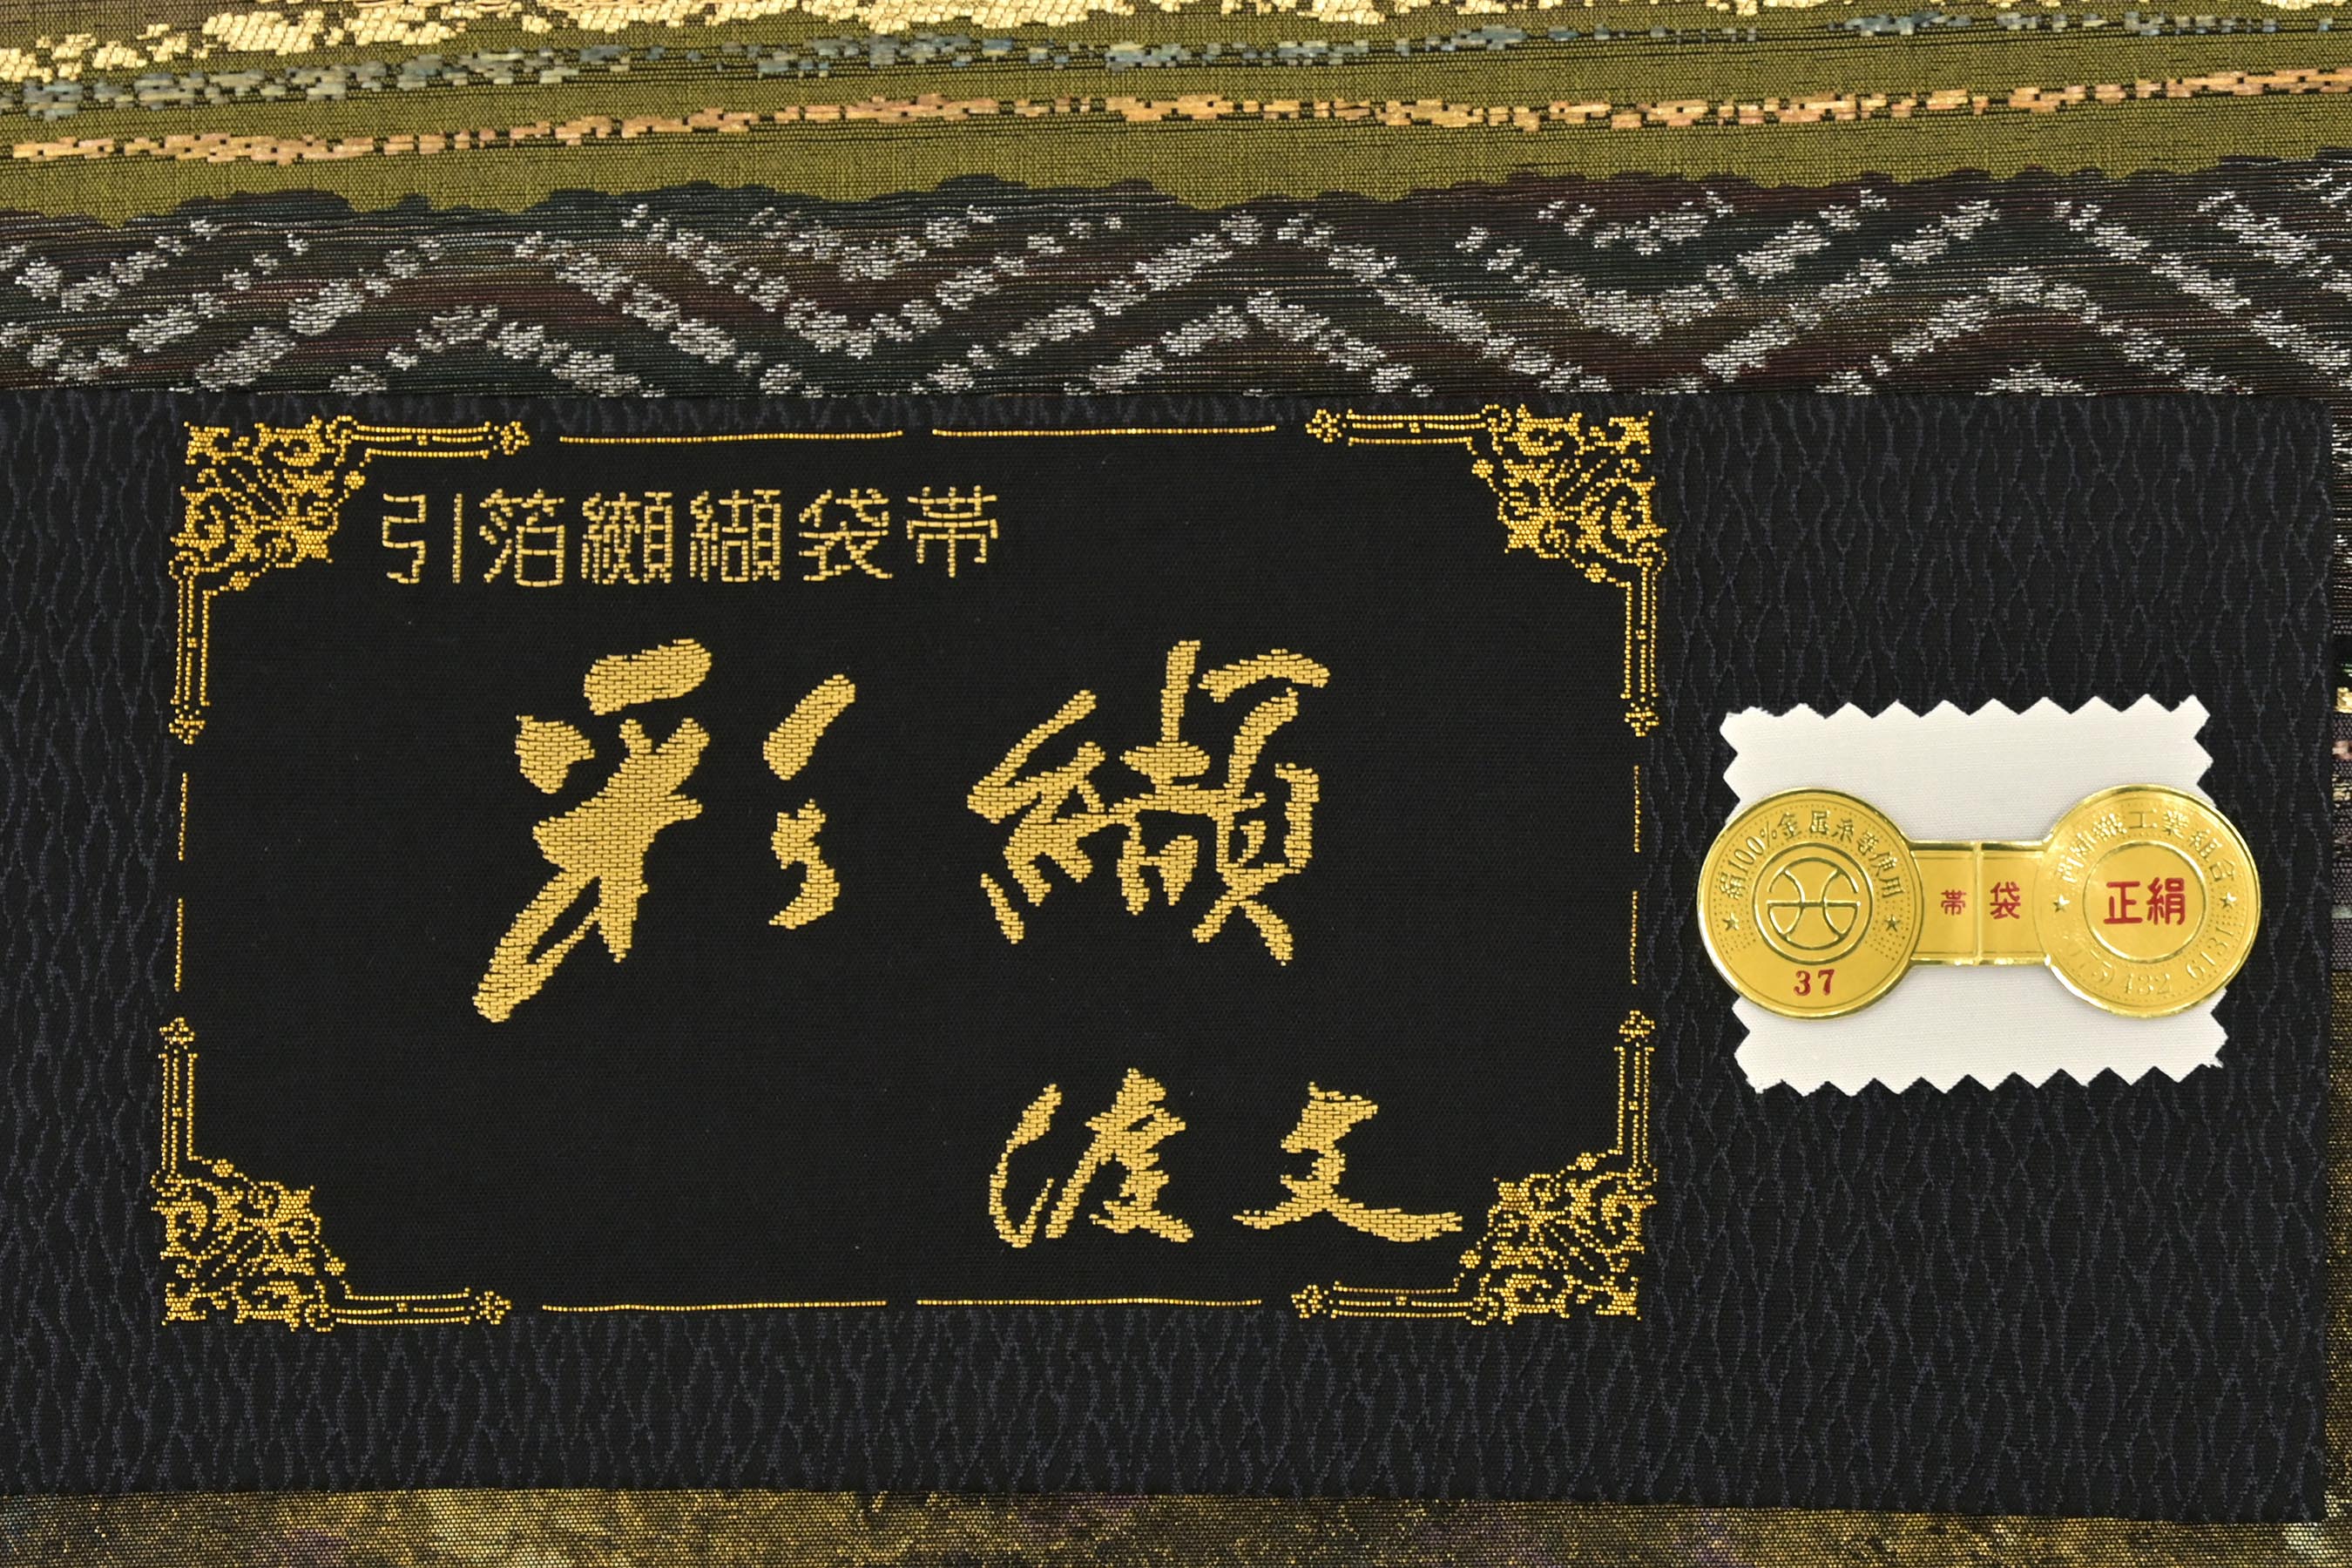 引箔纐纈袋帯
彩纈
渡文
絹100%金属糸等使用
37
帯袋
西陣織工業組合
正絹
(075)432-6131